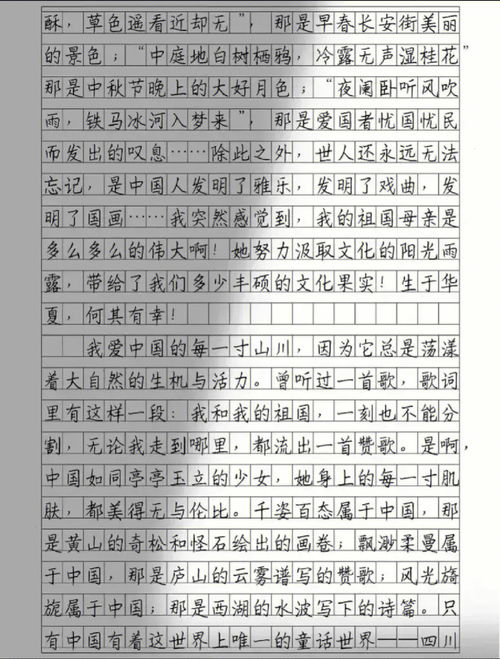 酥，草色遥看近却无”，那是早春长安街美丽
的景色；“中庭地白树栖鸦，冷露无声湿桂花”
那是中秋节晚上的大好月色；“夜阑卧听风吹
雨，铁马冰河入梦来”，那是爱国者忧国忧民
而发出的叹息……除此之外，世人还永远无法
忘记，是中国人发明了雅乐，发明了戏曲，发
明了国画……我突然感觉到，我的祖国母亲是
多么多么的伟大啊！她努力汲取文化的阳光雨
露，带给了我们多少丰硕的文化果实！生于华
夏，何其有幸！
我爱中国的每一寸山川，因为它总是荡漾
着大自然的生机与活力。曾听过一首歌，歌词
里有这样一段：我和我的祖国，一刻也不能分
割，无论我走到哪里，都流出一首赞歌。是啊，
中国如同亭亭玉立的少女，她身上的每一寸肌
肤，都美得无与伦比。千姿百态属于中国，那
是黄山的奇松和怪石绘出的画卷；飘渺柔曼属
于中国，那是庐山的云雾谱写的赞歌；风光旖
旎属于中国；那是西湖的水波写下的诗篇。只
有中国有着这世界上唯一的童话世界——四川